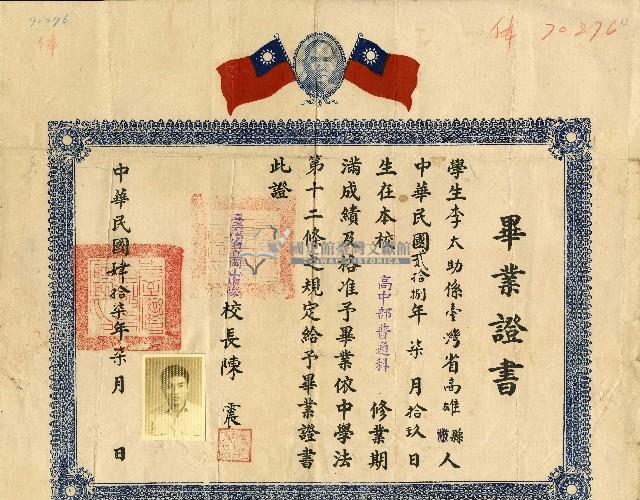 70276
偉
偉 70276
畢業證書
學生李太助係臺灣省高雄縣人
中華民國貳拾捌年柒月拾玖日
生在本校高中部普通科修業期
滿成績及格准予畢業依中學法
第十二條之規定給予畢業證書
此證
校長陳震
中華民國肆拾柒年柒月 日
國史館臺灣文獻館
TAIWAN HISTORICA